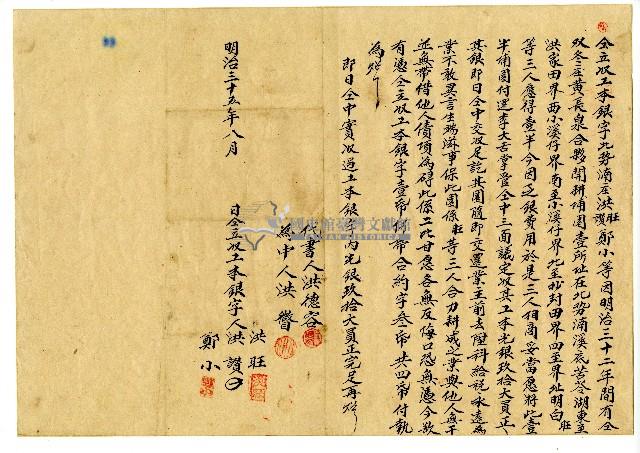 仝立收工本銀字北勢湳庄洪旺讚鄭小等因明治三十二年間有仝
双冬庄黃長泉合夥開耕埔園壹所址在北勢湳溪底苦苓湖東至
洪家田界西小溪仔界南至小溪仔界北至 封田界四至界址明白旺
等三人應得壹半今因乏銀費用於是三人相商妥當愿將此壹
半埔園付還李大吉掌管仝中三面議定收其工本光銀玖拾大員正
其銀即日仝中交收足訖其園隨即交還業主前去陞科給税永遠為
業不敢異言生端滋事保此園係旺等三人合力耕成之業與他人無干
並無帶借他人債項為碍此係二比甘愿各無反悔口恐無憑今欲
有憑仝立收工本銀字壹帋 帶合約字叁帋共四帋付執
為炤
即日仝中實收過工本銀 內光銀玖拾大員正完足再炤
代書人洪德容
為中人洪
明治三十五年八月 日仝立收工本銀字人洪讚
洪旺
鄭小
國史館臺灣文獻館
TAIWAN HISTORICA